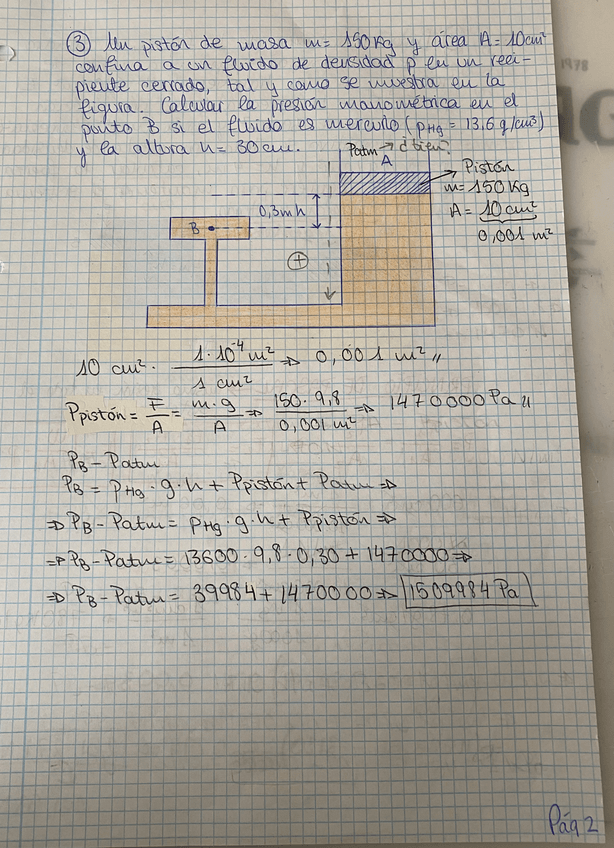 ③ Un pistón de masa m = 150 Kg y área A = 10cm²
confina a un fluido de densidad ρ en un reci-
piente cerrado, tal y como se muestra en la
figura. Calcular la presión manométrica en el
punto B si el fluido es mercurio (ρHg = 13.6 g/cm³)
y la altura h = 30 cm.
Patm → ¿bien?
A
Pistón
m = 150 Kg
A = 10 cm²
0,001 m²
0,3m h
B
+
10 cm² · 1·10⁻⁴ m² / 1 cm² ⇒ 0,001 m² //
Ppistón = F/A = m·g/A ⇒ 150·9,8/0,001 m² ⇒ 1470000 Pa //
PB - Patm
PB = ρHg · g · h + Ppistón + Patm ⇒
⇒ PB - Patm = ρHg · g · h + Ppistón ⇒
⇒ PB - Patm = 13600 · 9,8 · 0,30 + 1470000 ⇒
⇒ PB - Patm = 39984 + 1470000 ⇒ 1509984 Pa
Pág 2
1978